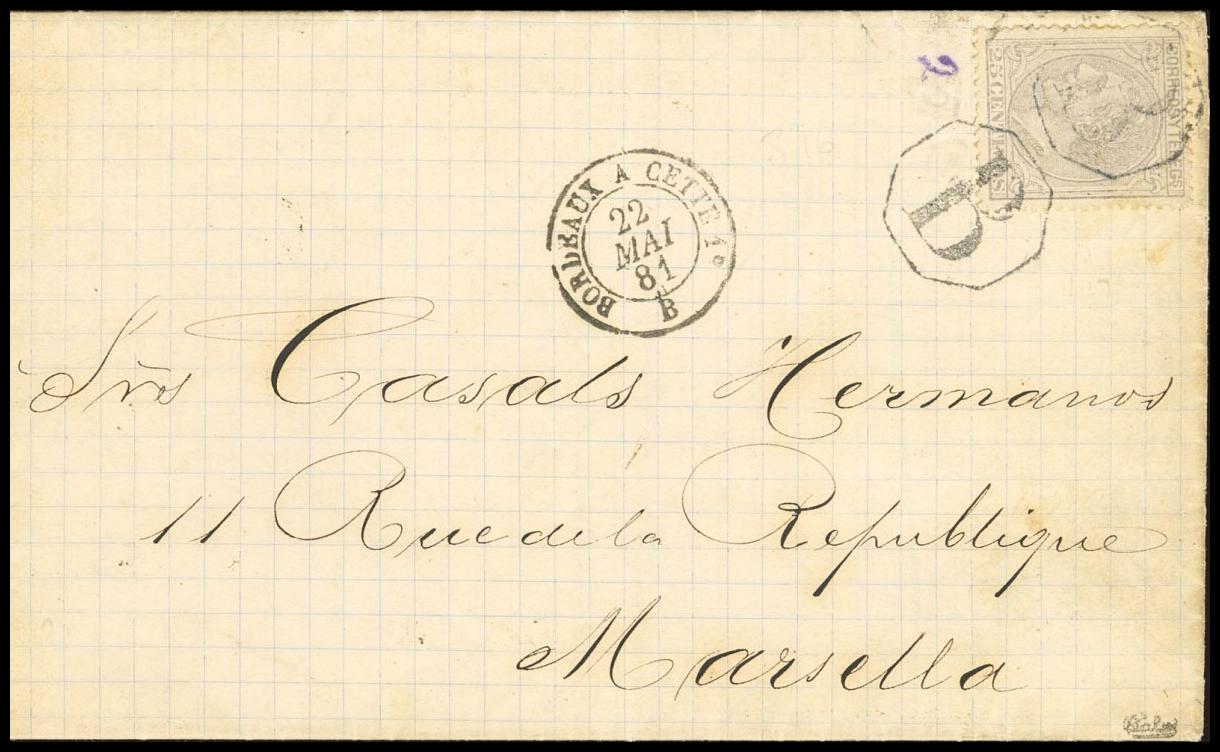 25 CENTIMOS
CORREOS Y TELEGS
2
D
BORDEAUX A CETTE 1º
22
MAI
81
B
Srs Casals Hermanos
11 Rue de la Republique
Marsella